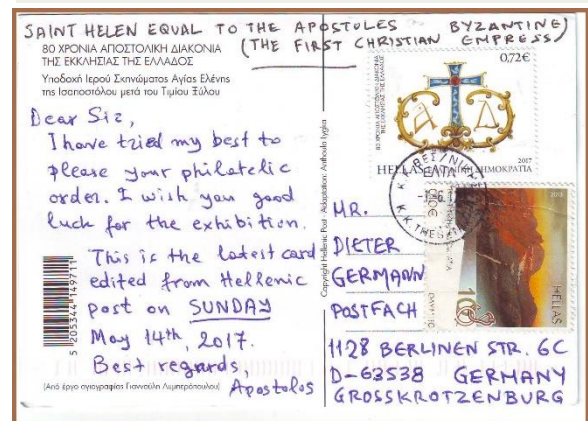 SAINT HELEN EQUAL TO THE APOSTOLES BYZANTINE)
(THE FIRST CHRISTIAN EMPRESS)
80 ΧΡΟΝΙΑ ΑΠΟΣΤΟΛΙΚΗ ΔΙΑΚΟΝΙΑ
ΤΗΣ ΕΚΚΛΗΣΙΑΣ ΤΗΣ ΕΛΛΑΔΟΣ
Υποδοχή Ιερού Σκηνώματος Αγίας Ελένης
της Ισαποστόλου μετά του Τιμίου Ξύλου
Dear Sir,
I have tried my best to
please your philatelic
order. I wish you good
luck for the exhibition.
This is the latest card
edited from Hellenic
post on SUNDAY
May 14th, 2017.
Best regards,
Apostolos
5 205344 149711
(Από έργο αγιογραφίας Γιανναύλη Λυμπερόπουλου)
Copyright Hellenic Post - Adaptation: Anthoula Lygka
80 ΧΡΟΝΙΑ ΑΠΟΣΤΟΛΙΚΗ ΔΙΑΚΟΝΙΑ
0,72€
Α Δ
2017
HELLAS ΕΛΛΗΝΙΚΗ ΔΗΜΟΚΡΑΤΙΑ
ΕΛΤΑ
HELLAS
MR.
DIETER
GERMANN
POSTFACH
1128 BERLINEN STR. 6C
D-63538 GERMANY
GROSSKROTZENBURG